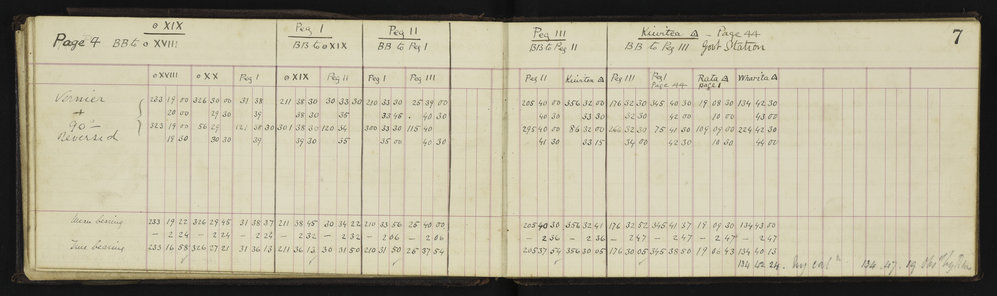 o XIX Peg I Peg II Peg III Kiwitea △ – Page 44 7
Page 4 BB to o XVIII BB to o XIX BB to Peg I BB to Peg II BB to Peg III Govt Station
o XVIII o XX Peg I o XIX Peg II Peg I Peg III Peg II Kiwitea △ Peg III Peg I Page 44 Ruta △ page 1 Wharita △
Vernier 233 19 00 326 30 00 31 38 211 38 30 30 33 30 210 33 30 25 39 00 205 40 00 356 32 00 176 32 30 345 40 30 19 08 30 134 42 30
+ 20 00 29 30 39 38 30 35 33 45 40 30 40 30 33 30 32 30 42 00 10 00 43 00
90° 323 19 00 56 29 121 38 30 301 38 30 120 34 300 33 30 115 40 295 40 00 86 32 00 266 32 30 75 41 30 109 09 00 224 42 30
Reversed 19 30 30 30 39 39 30 35 35 00 40 30 41 30 33 15 34 00 42 30 10 30 44 00
Mean bearing 233 19 22 326 29 45 31 38 37 211 38 45 30 34 22 210 33 56 25 40 00 205 40 30 356 32 41 176 32 52 345 41 37 19 09 30 134 43 00
– 2 24 – 2 24 – 2 24 – 2 32 – 2 32 – 2 06 – 2 06 – 2 36 – 2 36 – 2 47 – 2 47 – 2 47 – 2 47
True bearing 233 16 58 326 27 21 31 36 13 211 36 13 30 31 50 210 31 50 25 37 54 205 37 54 356 30 05 176 30 05 345 38 50 19 06 43 134 40 13
134 42 24 My cal 134 . 47 . 19 Obs